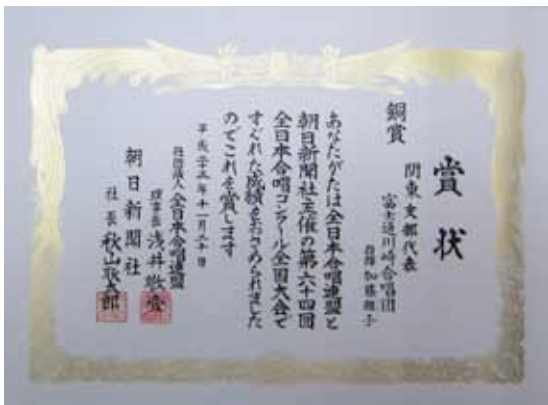 賞状
銅賞
関東支部代表
富士通川崎合唱団
指揮 加藤
あなたがたは全日本合唱連盟と
朝日新聞社主催の第六十四回
全日本合唱コンクール全国大会で
すぐれた成績をおさめられました
のでこれを賞します
平成二十三年十一月二十日
社団法人全日本合唱連盟
理事長 浅井敬壹
朝日新聞社
社長 秋山耿太郎